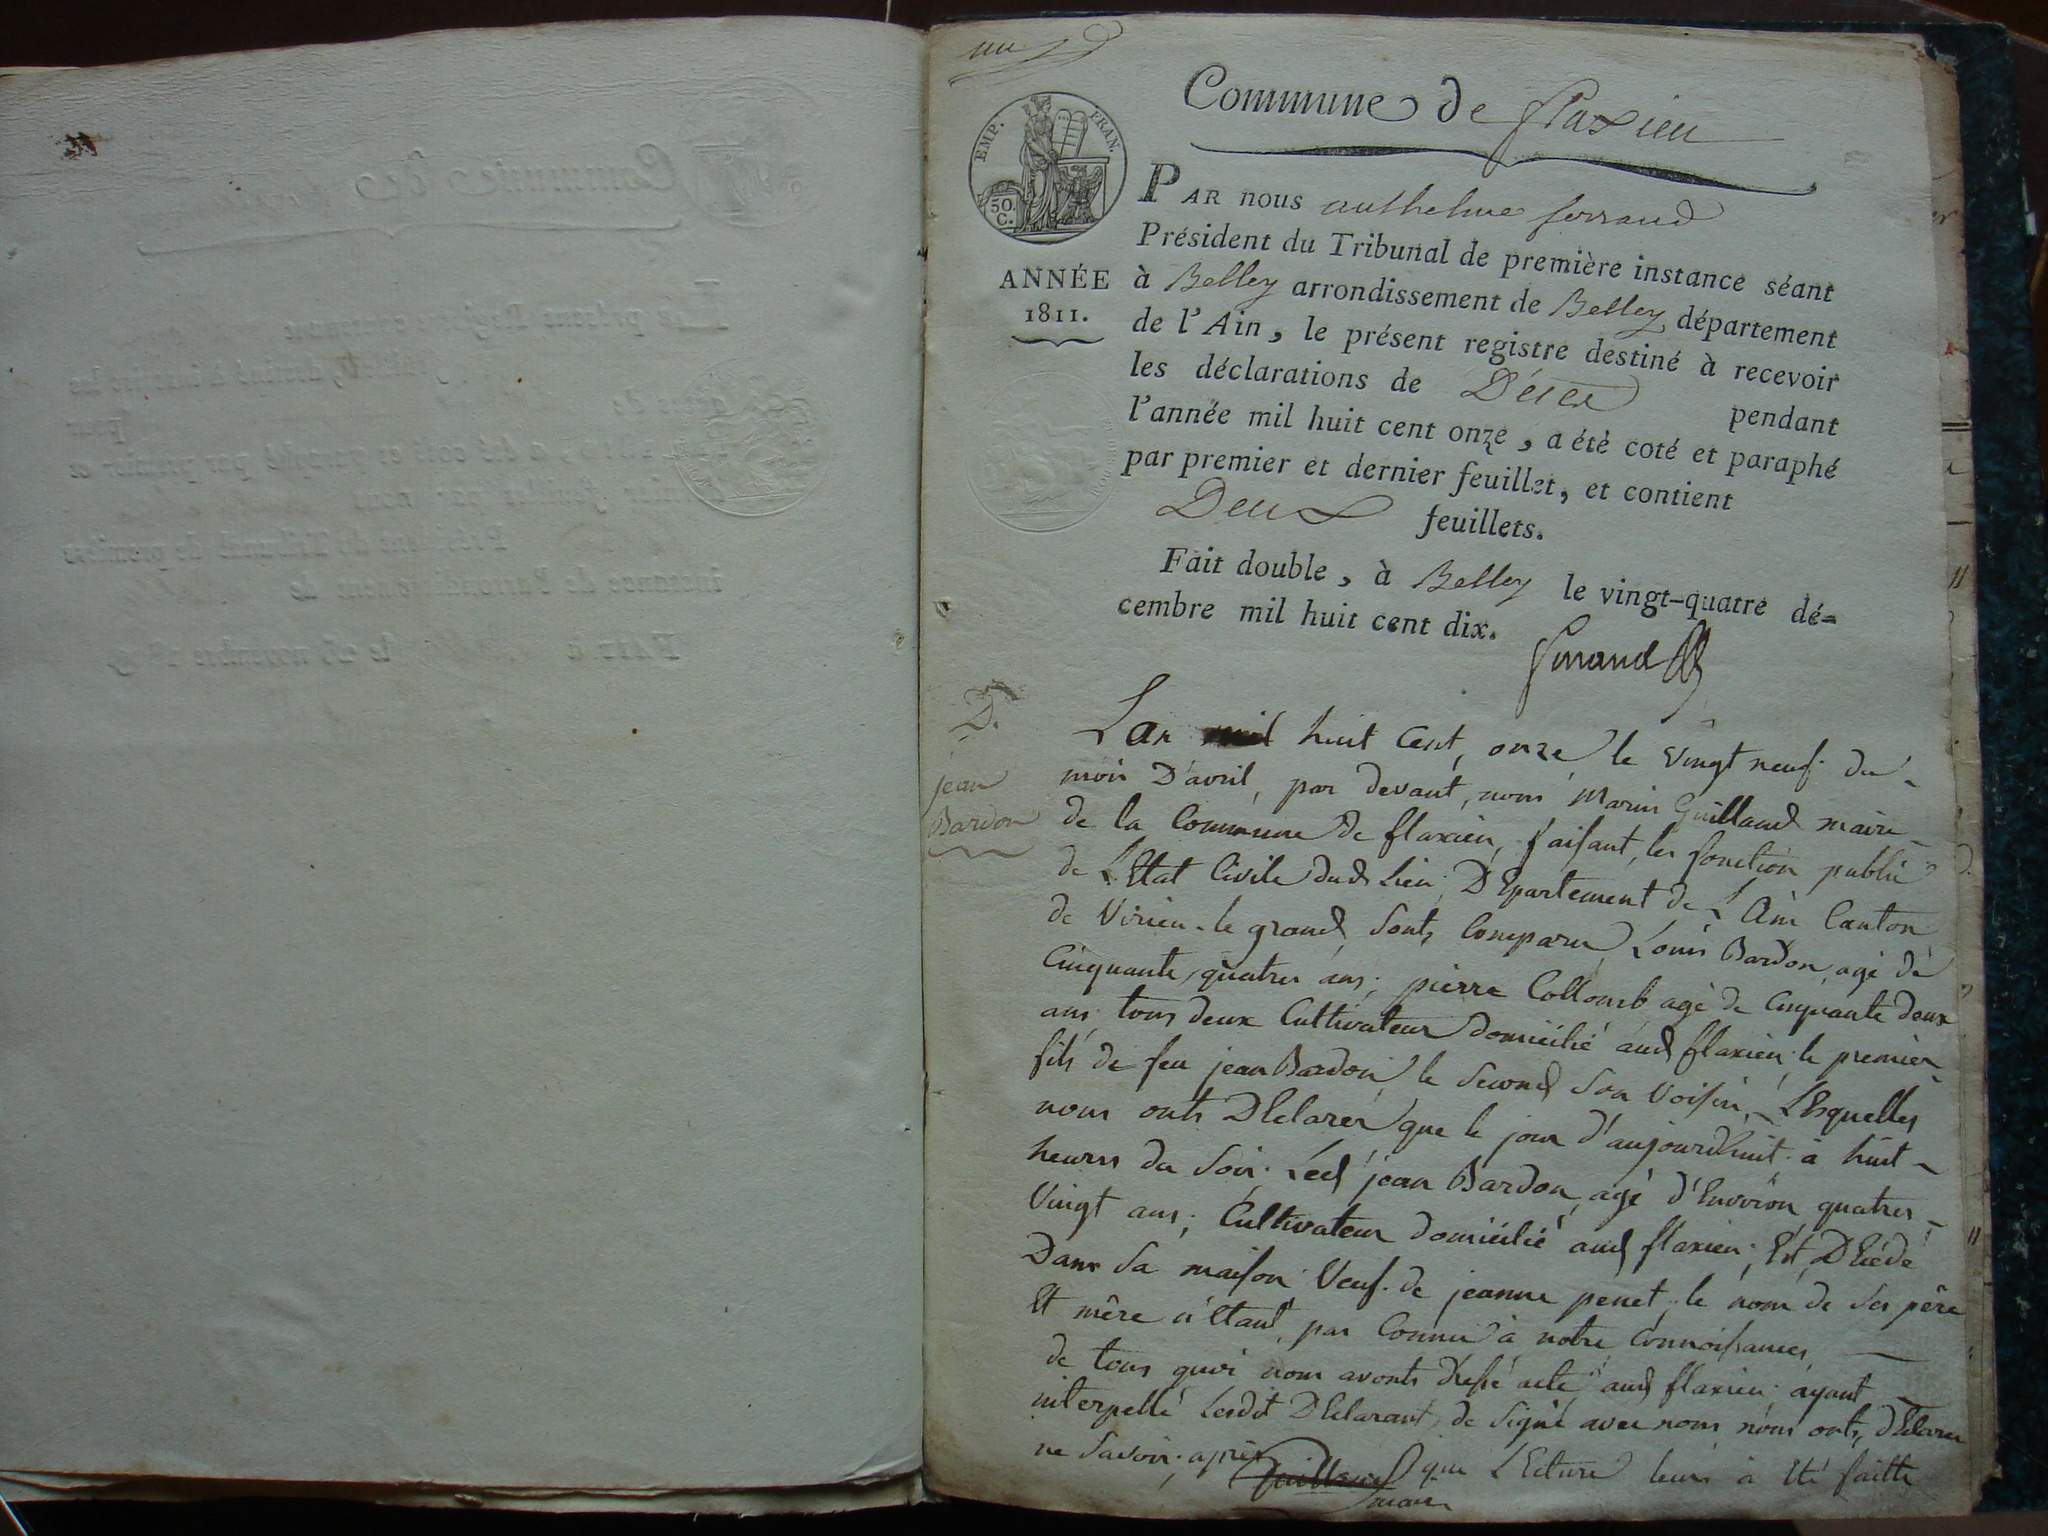 un
Commune de flaxieu
EMP. FRAN.
50. C.
ANNÉE
1811.
PAR nous anthelme ferrand
Président du Tribunal de première instance séant
à Belley arrondissement de Belley département
de l'Ain, le présent registre destiné à recevoir
les déclarations de Décès pendant
l'année mil huit cent onze, a été coté et paraphé
par premier et dernier feuillet, et contient
Deux feuillets.
Fait double, à Belley le vingt-quatre dé-
cembre mil huit cent dix.
ferrand
D.
jean
Bardon
Lan mil huit Cent, onze le vingt neuf du
mois D'avril, par devant, nous Marin Guilland maire
de la Commune de flaxieu, faisant, les fonction public
de L'Etat Civile dud Lieu; DEpartement de L'Ain Canton
de Virieu-le grand, Sont, Comparu, Louis Bardon, agé de
Cinquante, quatres ans; pierre Collomb agé de Cinquante deux
ans tous deux Cultivateur domicilié aud flaxieu; le premier
fils de feu jean Bardon le Second Son Voisin, LEsquelles
nous onts DEclarer que le jour d'aujourdhuit à huit
heures du Soir; Led jean Bardon, agé d'Environ quatres
Vingt ans; Cultivateur domicilié aud flaxieu; Est, DEcédé
Dans Sa maison Veuf de jeanne penet, le nom de Ses père
Et mère n'Etant, pas Connu à notre Connoissances
de tous quoi nous avonts dressé acte aud flaxieu; ayant
interpellé Lesdit DEclarant, de Signé avec nous nous onts, dEclarer
ne Savoir; après que LEcture leurs à Eté faitte
Guilland
maire